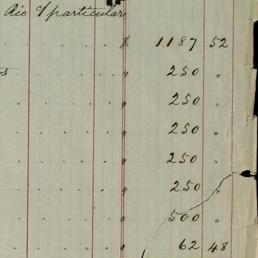 Rio particular
" 1187 52
s " 250 "
" 250 "
" 250 "
" 250 "
" 250 "
" 500 "
" 62 48